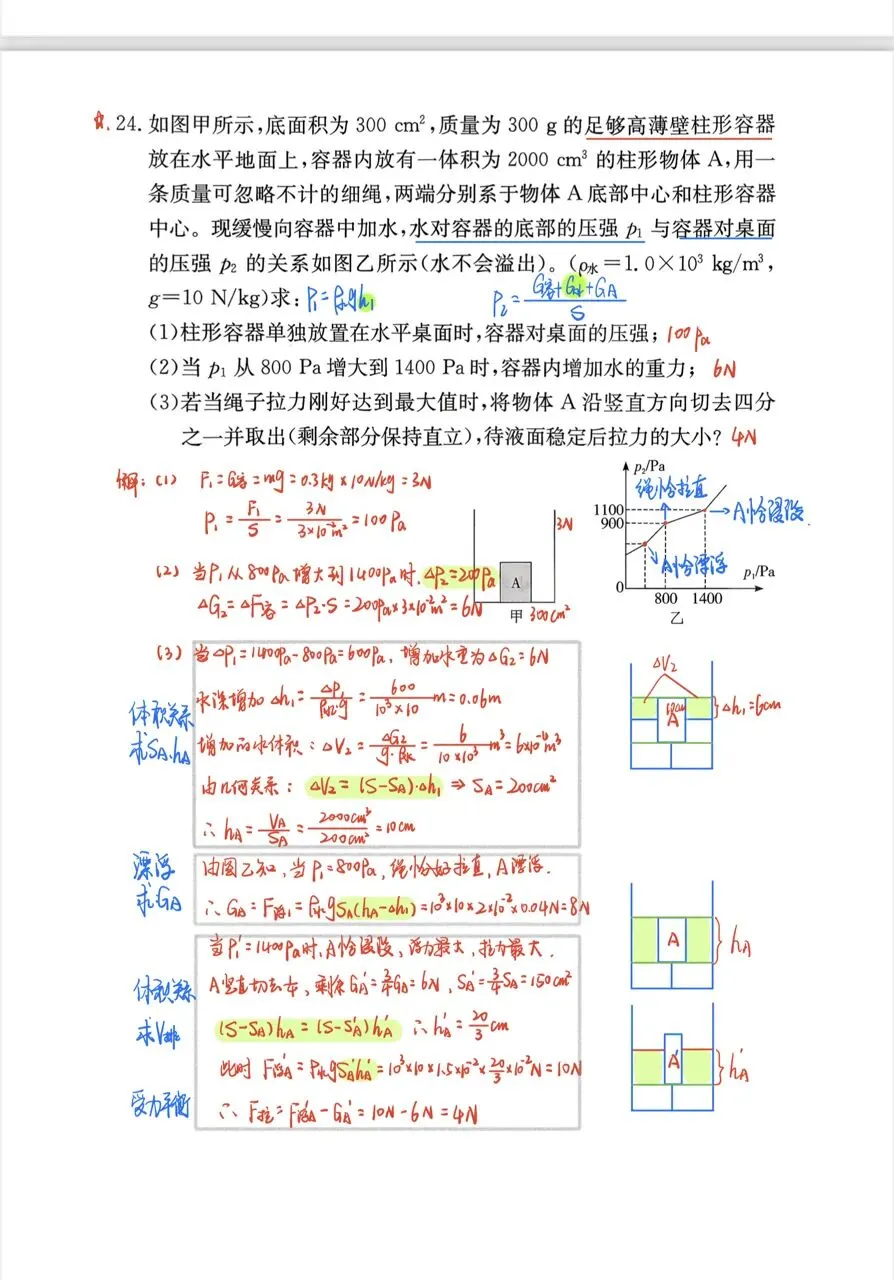 24. 如图甲所示,底面积为 300 cm²,质量为 300 g 的足够高薄壁柱形容器
放在水平地面上,容器内放有一体积为 2000 cm³ 的柱形物体 A,用一
条质量可忽略不计的细绳,两端分别系于物体 A 底部中心和柱形容器
中心。现缓慢向容器中加水,水对容器的底部的压强 p₁ 与容器对桌面
的压强 p₂ 的关系如图乙所示(水不会溢出)。(ρ水=1.0×10³ kg/m³,
g=10 N/kg)求: P₁=ρ水gh₁ P₂=(G容+G水+GA)/S
(1)柱形容器单独放置在水平桌面时,容器对桌面的压强; 100Pa
(2)当 p₁ 从 800 Pa 增大到 1400 Pa 时,容器内增加水的重力; 6N
(3)若当绳子拉力刚好达到最大值时,将物体 A 沿竖直方向切去四分
之一并取出(剩余部分保持直立),待液面稳定后拉力的大小? 4N
解: (1) F₁=G容=mg=0.3kg×10N/kg=3N
P₁=F₁/S=3N/(3×10⁻²m²)=100Pa
(2) 当P₁从800Pa增大到1400Pa时, ΔP₂=200Pa
ΔG₂=ΔF容=ΔP₂·S=200Pa×3×10⁻²m²=6N
A
3N
甲 300cm²
p₂/Pa
绳恰拉直
1100
900
A恰浸没
A恰漂浮
p₁/Pa
0
800 1400
乙
(3) 当ΔP₁=1400Pa-800Pa=600Pa, 增加水重为ΔG₂=6N
水深增加 Δh₁=ΔP₁/(ρ水g)=600/(10³×10)m=0.06m
体积关系
求SA、hA
增加的水体积: ΔV₂=ΔG₂/(g·ρ水)=6/(10×10³)m³=6×10⁻⁴m³
由几何关系: ΔV₂=(S-SA)·Δh₁ ⇒ SA=200cm²
∴ hA=VA/SA=2000cm³/200cm²=10cm
ΔV₂
10cm
A
Δh₁=6cm
漂浮
求GA
由图乙知, 当P₁=800Pa, 绳恰好拉直, A漂浮.
∴ GA=F浮₁=ρ水gSA(hA-Δh₁)=10³×10×2×10⁻²×0.04N=8N
A
hA
当P₁'=1400Pa时, A恰浸没, 浮力最大, 拉力最大.
体积关系
求V排
A竖直切去¼, 剩余GA'=¾GA=6N, SA'=¾SA=150cm²
(S-SA)hA=(S-SA')hA' ∴ hA'=20/3 cm
此时 F浮A'=ρ水gSA'hA'=10³×10×1.5×10⁻²×20/3×10⁻²N=10N
受力平衡
∴ F拉=F浮A'-GA'=10N-6N=4N
A'
hA'